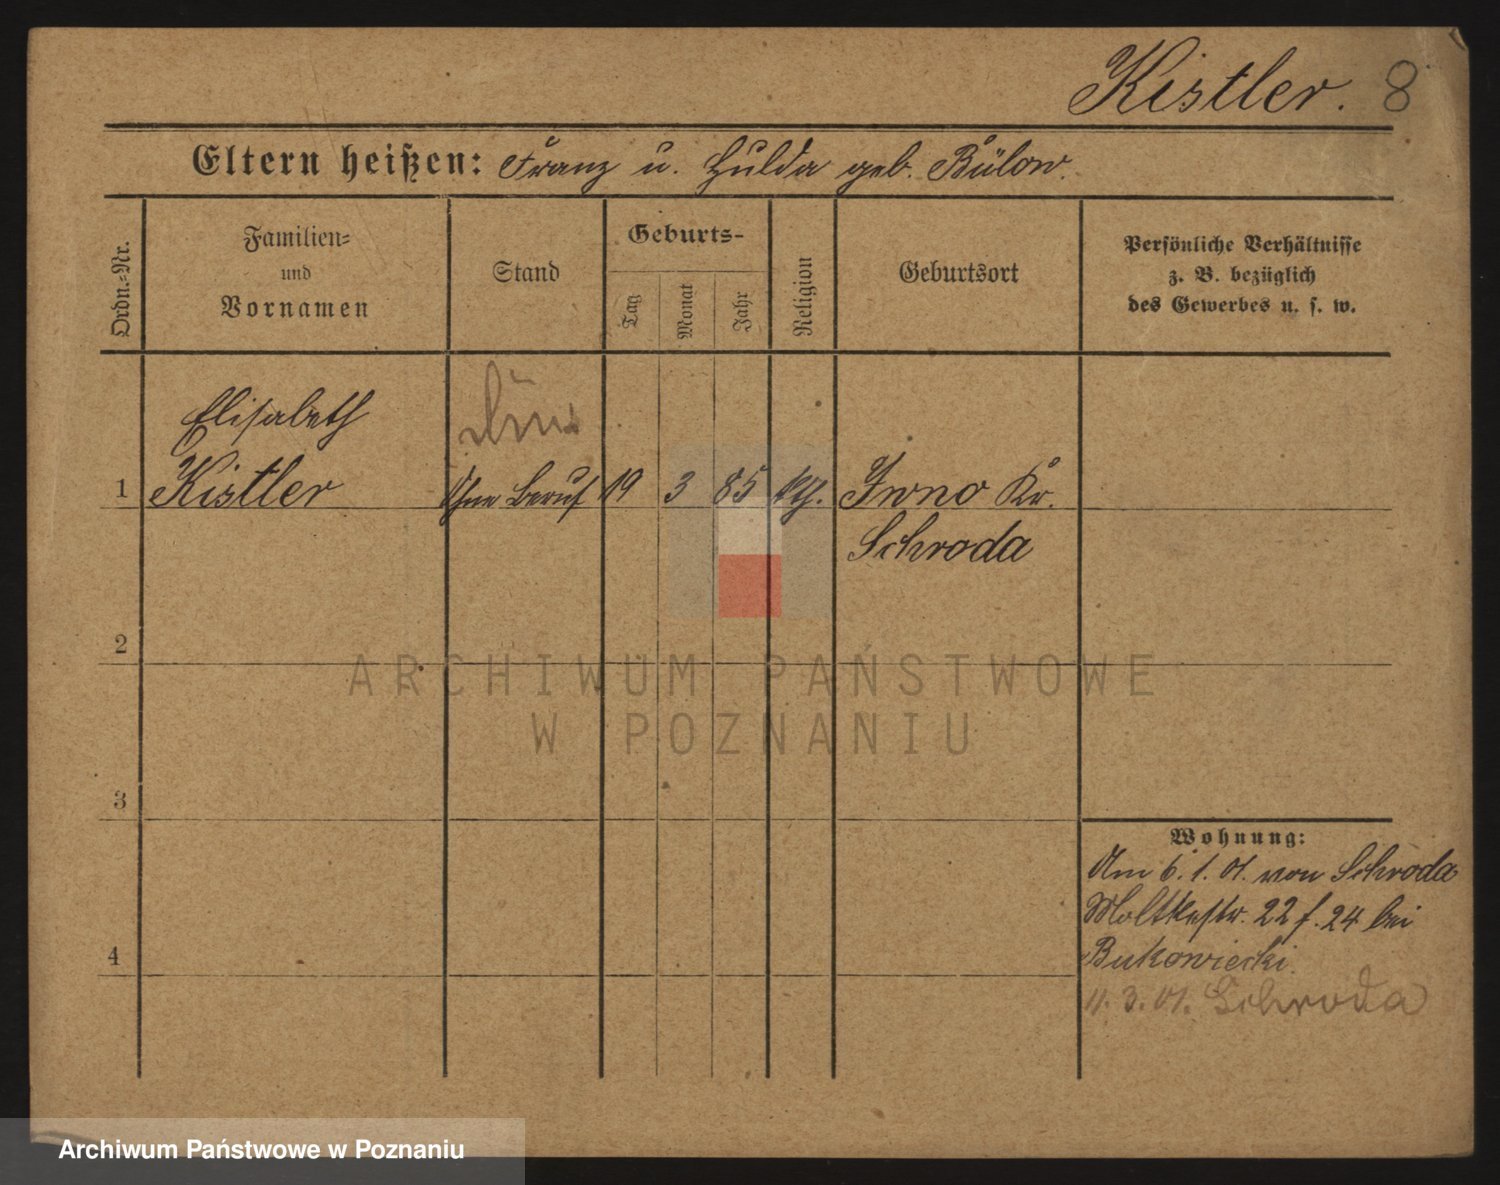 Kistler. 8
Eltern heißen: Franz u. Hulda geb. Bülow.
Ordn.-Nr.
Familien-
und
Vornamen
Stand
Geburts-
Tag
Monat
Jahr
Religion
Geburtsort
Persönliche Verhältnisse
z. B. bezüglich
des Gewerbes u. s. w.
Elisabeth
1 Kistler Ohne Beruf 19 3 85 kth. Iwno Kr.
Schroda
2
3
4
Wohnung:
Am 6. 1. 01. von Schroda
Moltkestr. 22 f. 24 bei
Bukowiecki.
11. 3. 01. Schroda
ARCHIWUM PAŃSTWOWE
W POZNANIU
Archiwum Państwowe w Poznaniu